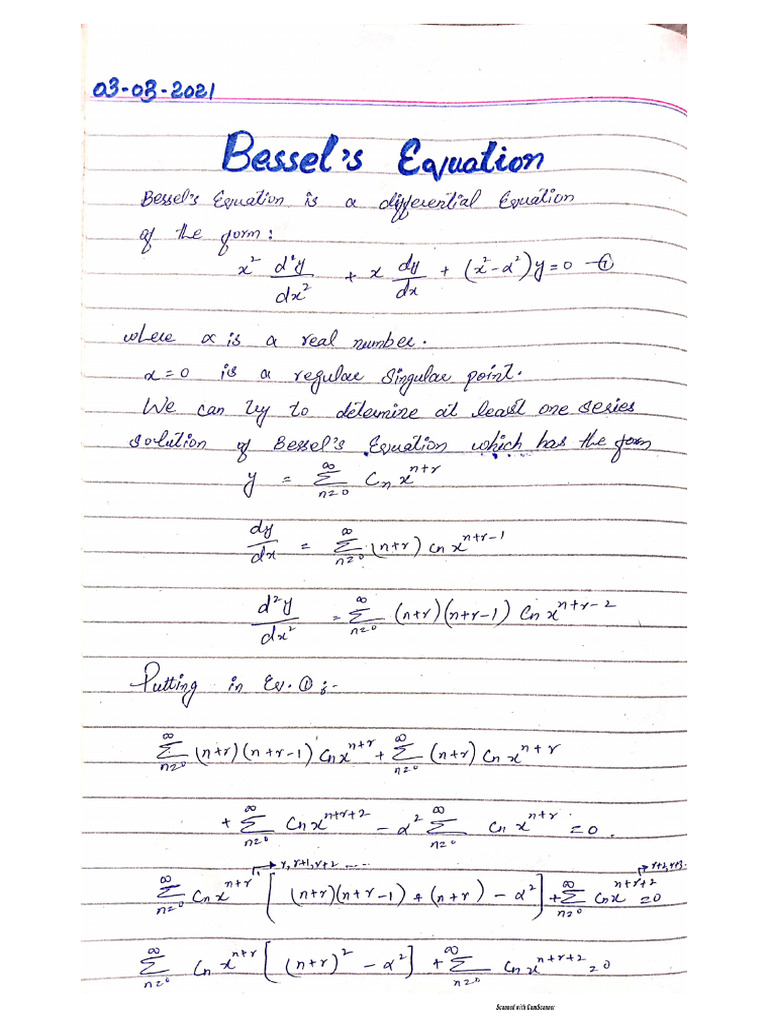 03-03-2021
Bessel's Equation
Bessel's Equation is a differential Equation
of the form:
x² d²y/dx² + x dy/dx + (x² - α²)y = 0 —①
where α is a real number.
x = 0 is a regular singular point.
We can try to determine at least one series
solution of Bessel's Equation which has the form
y = ∑_{n=0}^{∞} Cₙ x^{n+r}
dy/dx = ∑_{n=0}^{∞} (n+r) Cₙ x^{n+r-1}
d²y/dx² = ∑_{n=0}^{∞} (n+r)(n+r-1) Cₙ x^{n+r-2}
Putting in Eq. ① :-
∑_{n=0}^{∞} (n+r)(n+r-1) Cₙ x^{n+r} + ∑_{n=0}^{∞} (n+r) Cₙ x^{n+r}
+ ∑_{n=0}^{∞} Cₙ x^{n+r+2} - α² ∑_{n=0}^{∞} Cₙ x^{n+r} = 0.
→ r, r+1, r+2 .... → r+2, r+3.
∑_{n=0}^{∞} Cₙ x^{n+r} [ (n+r)(n+r-1) + (n+r) - α² ] + ∑_{n=0}^{∞} Cₙ x^{n+r+2} = 0
∑_{n=0}^{∞} Cₙ x^{n+r} [ (n+r)² - α² ] + ∑_{n=0}^{∞} Cₙ x^{n+r+2} = 0
Scanned with CamScanner